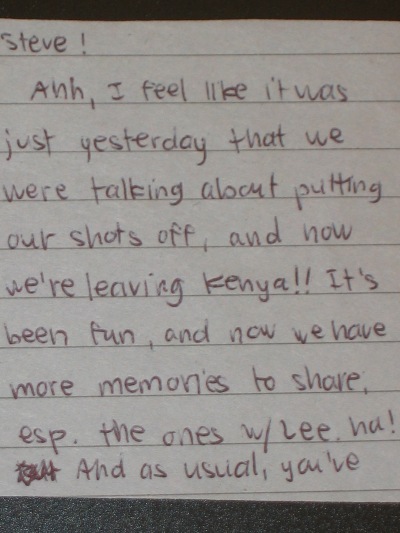 Steve!
Ahh, I feel like it was
just yesterday that we
were talking about putting
our shots off, and now
we're leaving Kenya!! It's
been fun, and now we have
more memories to share,
esp. the ones w/ Lee. ha!
And as usual, you've